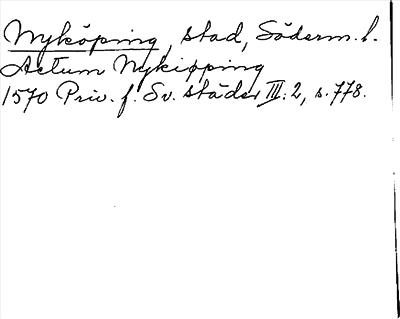 Nyköping, stad, Söderm. l.
Actum Nykipping
1570 Priv. f. Sv. städer III:2, s. 778.